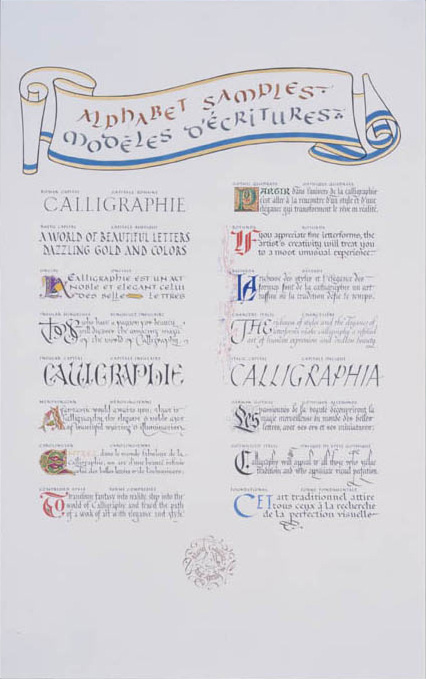 ALPHABET SAMPLES
MODÈLES D'ÉCRITURES
ROMAN CAPITAL CAPITALE ROMAINE
CALLIGRAPHIE
RUSTIC CAPITAL CAPITALE RUSTIQUE
A WORLD OF BEAUTIFUL LETTERS
DAZZLING GOLD AND COLORS
UNCIAL ONCIALE
LA CALLIGRAPHIE EST UN ART
NOBLE ET ELEGANT CELUI
DES BELLES LETTRES
INSULAR
you who have a passion for beauty
will discover the amazing magic
of the world of Calligraphy
INSULAR CAPITAL CAPITALE INSULAIRE
CALLIGRAPHIE
MEROVINGIAN MÉROVINGIENNE
A fantastic world awaits you; that is
calligraphy, the elegant & noble art
of beautiful writing & illumination
CAROLINGIAN CAROLINGIENNE
dans le monde fabuleux de la
calligraphie,
des belles lettres & de l'enluminure
COMPOUND STYLE FORME COMPOSÉE
To transform fantasy into reality step into the
world of Calligraphy and travel the path
of a work of art with elegance and style
GOTHIC QUADRATA GOTHIQUE QUADRATA
PARTIR dans l'univers de la calligraphie
c'est aller à la rencontre d'un style et d'une
élégance qui transforment le rêve en réalité.
ROTUNDA ROTUNDA
If you appreciate fine letterforms, the
artist's creativity will treat you
to a most unusual experience
BASTARDA BÂTARDE
LA richesse des styles et l'élégance des
formes font de la calligraphie un art
raffiné où la tradition défie le temps.
CHANCERY ITALIC
The richness of styles and the elegance of
letterforms make calligraphy a refined
art of human expression and endless beauty
ITALIC CAPITAL CAPITALE ITALIQUE
CALLIGRAPHIA
Les passionnés de la beauté découvriront la
magie merveilleuse du monde des belles-
lettres, avec ses ors et ses miniatures
Calligraphy will appeal to all those who value
tradition and who appreciate visual perfection
FOUNDATIONAL FORME FONDAMENTALE
CET art traditionnel attire
tous ceux à la recherche
de la perfection visuelle